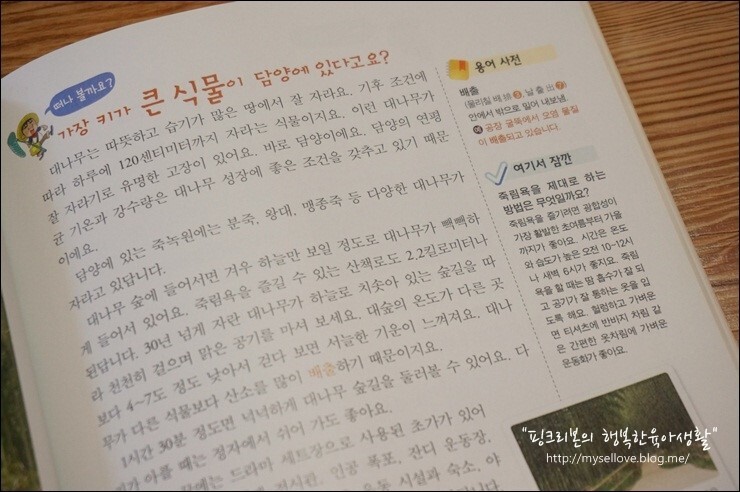 떠나 볼까요?
가장 키가 큰 식물이 담양에 있다고요?
대나무는 따뜻하고 습기가 많은 땅에서 잘 자라요. 기후 조건에
따라 하루에 120센티미터까지 자라는 식물이지요. 이런 대나무가
잘 자라기로 유명한 고장이 있어요. 바로 담양이에요. 담양의 연평
균 기온과 강수량은 대나무 성장에 좋은 조건을 갖추고 있기 때문
이에요.
담양에 있는 죽녹원에는 분죽, 왕대, 맹종죽 등 다양한 대나무가
자라고 있답니다.
대나무 숲에 들어서면 겨우 하늘만 보일 정도로 대나무가 빽빽하
게 들어서 있어요. 죽림욕을 즐길 수 있는 산책로도 2.2킬로미터나
된답니다. 30년 넘게 자란 대나무가 하늘로 치솟아 있는 숲길을 따
라 천천히 걸으며 맑은 공기를 마셔 보세요. 대숲의 온도가 다른 곳
보다 4~7도 정도 낮아서 걷다 보면 서늘한 기운이 느껴져요. 대나
무가 다른 식물보다 산소를 많이 배출하기 때문이지요.
1시간 30분 정도면 넉넉하게 대나무 숲길을 둘러볼 수 있어요. 다
리가 아플 때는 정자에서 쉬어 가도 좋아요.
에는 드라마 세트장으로 사용된 초가가 있어
전시관, 인공 폭포, 잔디 운동장,
운동 시설과 숙소, 야
용어 사전
배출
(물리칠 배 排 ❸, 날 출 出 ❼)
안에서 밖으로 밀어 내보냄.
예 공장 굴뚝에서 오염 물질
이 배출되고 있습니다.
여기서 잠깐
죽림욕을 제대로 하는
방법은 무엇일까요?
죽림욕을 즐기려면 광합성이
가장 활발한 초여름부터 가을
까지가 좋아요. 시간은 온도
와 습도가 높은 오전 10~12시
나 새벽 6시가 좋지요. 죽림
욕을 할 때는 땀 흡수가 잘 되
고 공기가 잘 통하는 옷을 입
도록 해요. 헐렁하고 가벼운
면 티셔츠에 반바지 차림 같
은 간편한 옷차림에 가벼운
운동화가 좋아요.
"핑크리본의 행복한육아생활"
http://mysellove.blog.me/